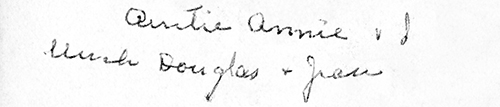 Auntie Annie & I
Uncle Douglas + Jean